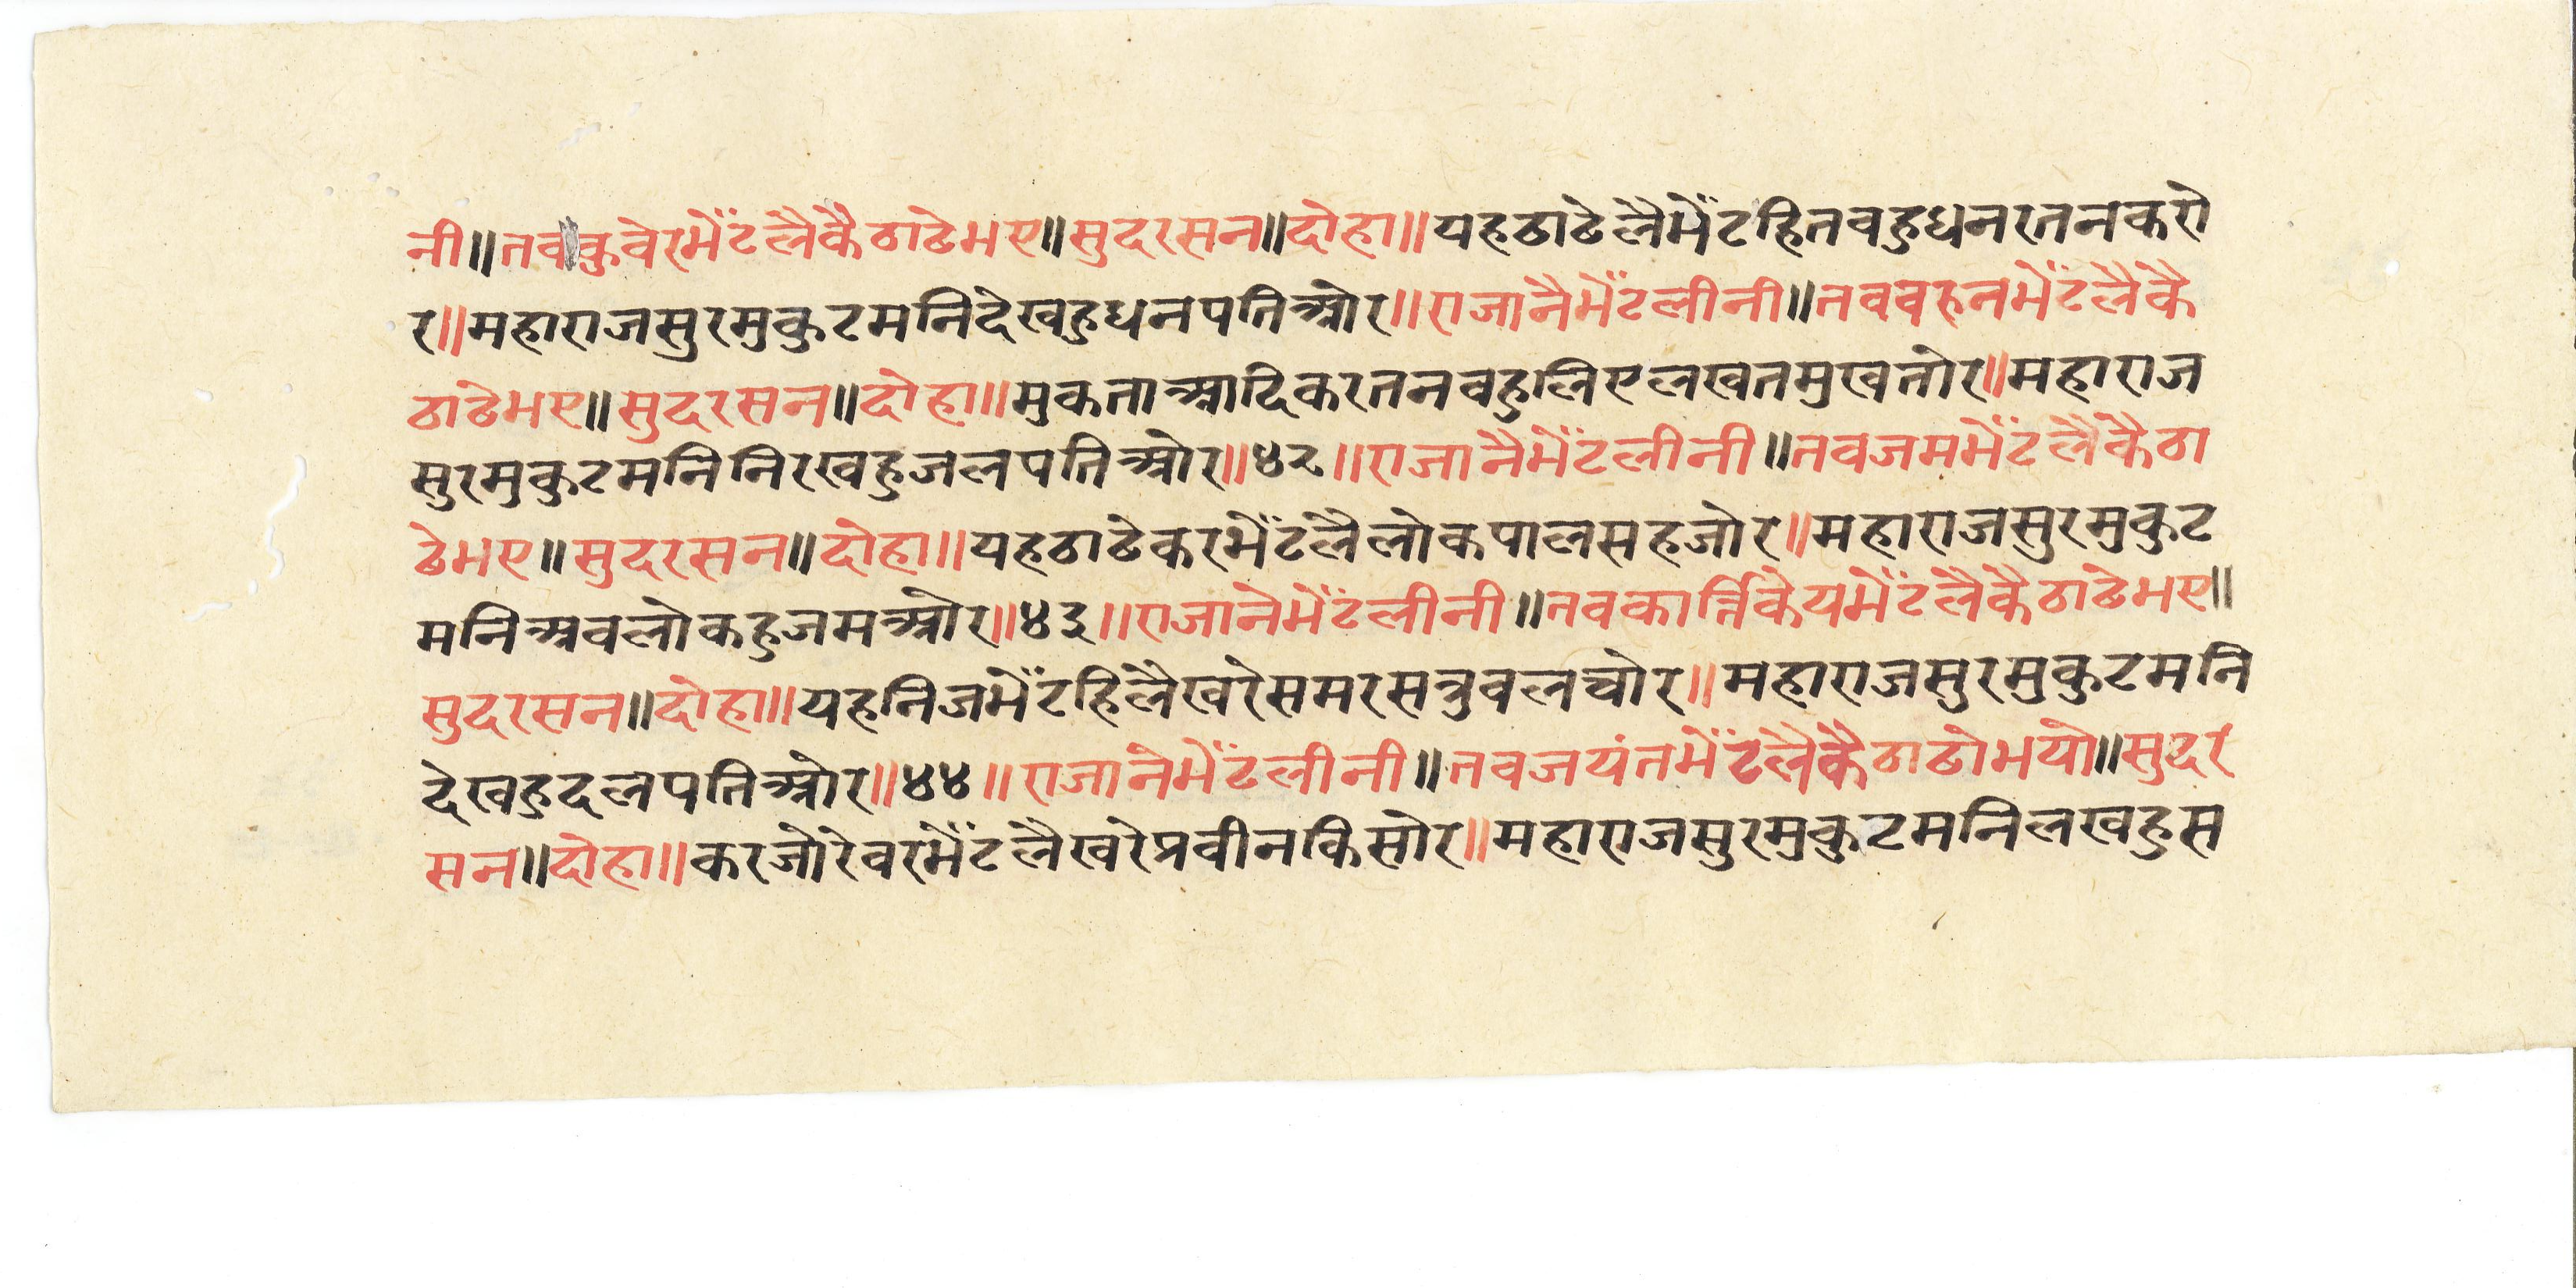 नी॥तवकुवेरभेँटलैकैठाढेभए॥सुदरसन॥दोहा॥यहठाढेलैभेँटहितवहुधनरतनकरो
र॥महाराजसुरमुकुटमनिदेखहुधनपतिओर॥राजानैभेँटलीनी॥तववरुनभेँटलैकै
ठाढेभए॥सुदरसन॥दोहा॥मुकताआदिकरतनवहुलिएलखतमुखतोर॥महाराज
सुरमुकुटमनिनिरखहुजलपतिओर॥४२॥राजानैभेँटलीनी॥तवजमभेँटलैकैठा
ढेभए॥सुदरसन॥दोहा॥यहठाढेकरभेँटलैलोकपालसहजोर॥महाराजसुरमुकुट
मनिअवलोकहुजमओर॥४३॥राजानेभेँटलीनी॥तवकार्त्तिकेयभेँटलैकैठाढेभए॥
सुदरसन॥दोहा॥यहनिजभेँटहिलैखरेसमरसत्रुवलचोर॥महाराजसुरमुकुटमनि
देखहुदलपतिओर॥४४॥राजानेभेँटलीनी॥तवजयंतभेँटलैकैठाढोभयो॥सुदर
सन॥दोहा॥करजोरेवरभेँटलैखरेप्रवीनकिसोर॥महाराजसुरमुकुटमनिलखहुस